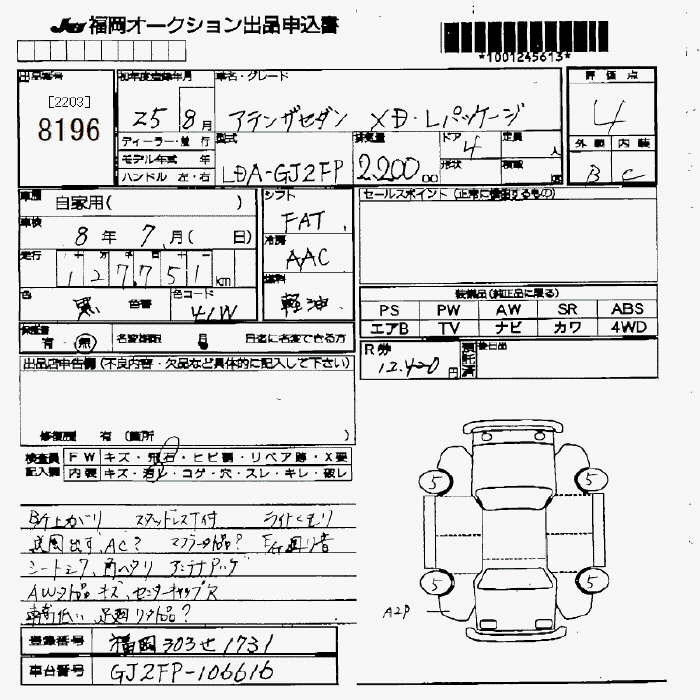 JU 福岡オークション出品申込書
*1001245613*
出品番号
[2203]
8196
初年度登録年月
25 8月
車名・グレード
アテンザセダン XD・Lパッケージ
評価点
4
外装 内装
B C
ディーラー・並行
モデル年式 年
ハンドル 左・右
型式
LDA-GJ2FP
排気量
2,200 cc
ドア
4
形状
定員
人
積載
車歴
自家用( )
車検
8年 7月( 日)
走行
127751 km
色
黒
色替
色コード
41W
シフト
FAT
冷房
AAC
燃料
軽油
セールスポイント (正常に機能するもの)
装備品(純正品に限る)
PS PW AW SR ABS
エアB TV ナビ カワ 4WD
保証書
有・無
名変期限 月 日迄に名変できる方
R券
12,420円
預託済
後日出
出品店申告欄 (不良内容・欠品など具体的に記入して下さい)
修復歴 有 (箇所 )
検査員
記入欄
FW キズ・飛石・ヒビ割・リペア跡・X要
内装 キズ・汚レ・コゲ・穴・スレ・キレ・破レ
スタッドレスT付 ライトくもり
AC? マフラー社外品? 回り音
AW社外品 キズ、センターキャップ欠
車高低い 足回り社外品?
5
5
5
5
A2P
登録番号
福岡303せ1731
車台番号
GJ2FP-106616